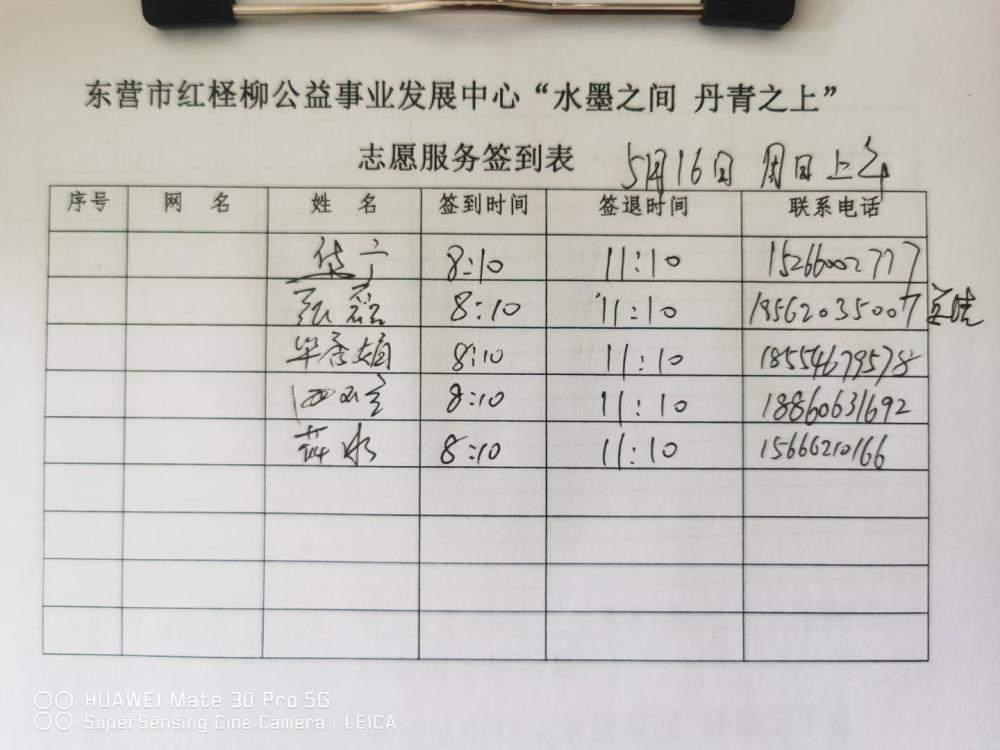 东营市红柽柳公益事业发展中心“水墨之间 丹青之上”
志愿服务签到表 5月16日 周日上午
序号 网 名 姓 名 签到时间 签退时间 联系电话
8:10 11:10 15266002777
张磊 8:10 11:10 18562035007
毕秀娟 8:10 11:10 18554679578
8:10 11:10 18860631692
8:10 11:10 15666210166
HUAWEI Mate 30 Pro 5G
SuperSensing Cine Camera | LEICA